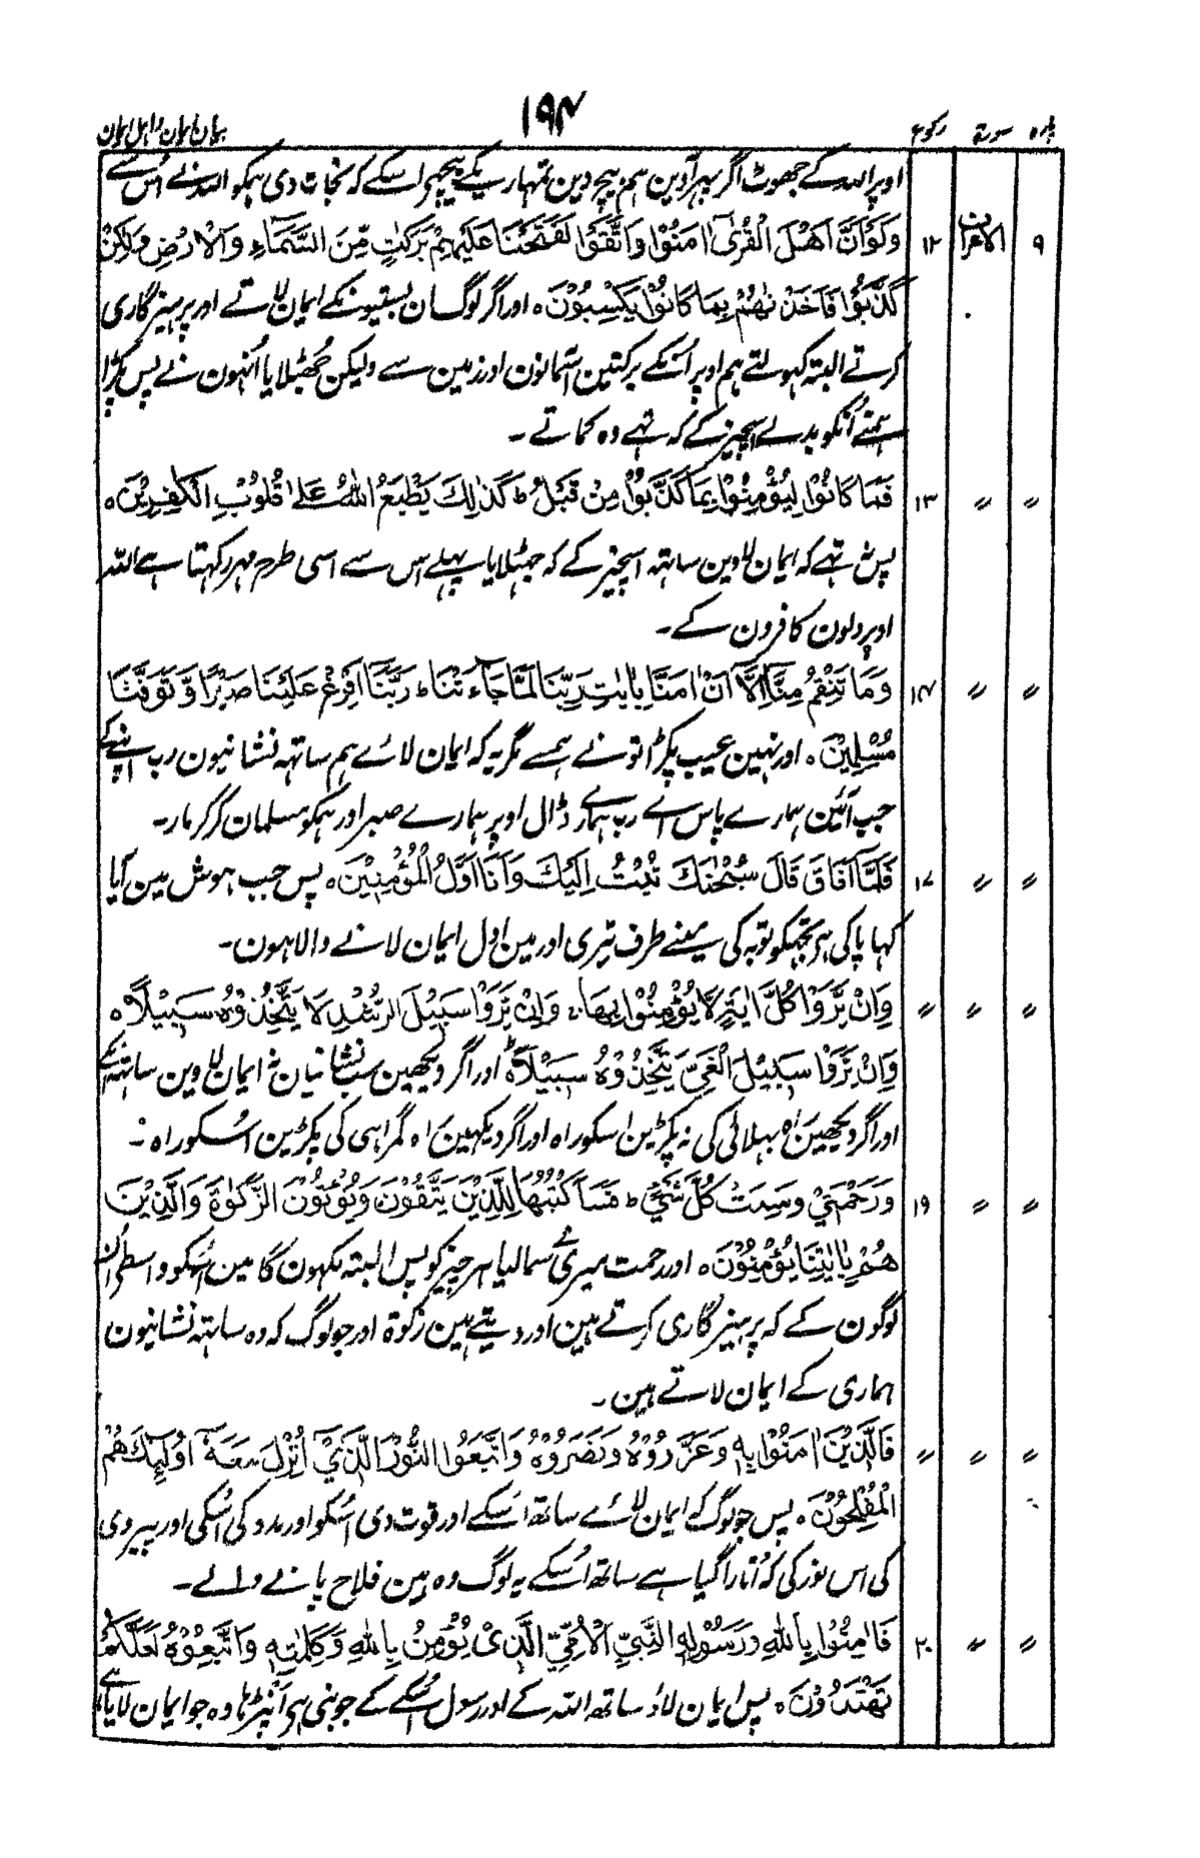 ۱۹۴
پارہ سورۃ رکوع بیان ایمان و اہل ایمان
اوپر اللہ کے جھوٹ اگر پہر آوین ہم بیچ دین تمہاریکے پیچہے اسکے کہ نجات دی ہمکو اللہ نے اُس سے
۹ الاعراف ۱۲ وَلَوْ اَنَّ اَهْلَ الْقُرٰٓى اٰمَنُوْا وَاتَّقَوْا لَفَتَحْنَا عَلَيْهِمْ بَرَكٰتٍ مِّنَ السَّمَآءِ وَالْاَرْضِ وَلٰكِنْ
كَذَّبُوْا فَاَخَذْنٰهُمْ بِمَا كَانُوْا يَكْسِبُوْنَ ہ اور اگر لوگ ان بستیونکے ایمان لاتے اور پرہیزگاری
کرتے البتہ کہولتے ہم اوپر اُنکے برکتین آسمانون اور زمین سے ولیکن جُھٹلایا اُنہون نے پس پکڑا
ہمنے اُنکو بدلے اسچیز کے کہ تہے وہ کماتے ۔
〃 〃 ۱۳ فَمَا كَانُوْا لِيُؤْمِنُوْا بِمَا كَذَّبُوْا مِنْ قَبْلُ ط كَذٰلِكَ يَطْبَعُ اللّٰهُ عَلٰى قُلُوْبِ الْكٰفِرِيْنَ ہ
پس نہ تہے کہ ایمان لاوین ساتہہ اسچیز کے کہ جہٹلایا پہلے اس سے اسی طرح مہر رکہتا ہے اللہ
اوپر دلون کافرون کے ۔
〃 〃 ۱۴ وَمَا تَنْقِمُ مِنَّآ اِلَّآ اَنْ اٰمَنَّا بِاٰيٰتِ رَبِّنَا لَمَّا جَآءَتْنَا ط رَبَّنَآ اَفْرِغْ عَلَيْنَا صَبْرًا وَّتَوَفَّنَا
مُسْلِمِيْنَ ہ اور نہین عیب پکڑا تو نے ہمسے مگر یہ کہ ایمان لائے ہم ساتہہ نشانیون رب اپنے کے
جب آئین ہمارے پاس اے رب ہمارے ڈال اوپر ہمارے صبر اور ہمکو مسلمان کر کر مار ۔
〃 〃 ۱۷ فَلَمَّآ اَفَاقَ قَالَ سُبْحٰنَكَ تُبْتُ اِلَيْكَ وَاَنَا اَوَّلُ الْمُؤْمِنِيْنَ ہ پس جب ہوش مین آیا
کہا پاکی ہے تجہکو توبہ کی مینے طرف تیری اور مین اول ایمان لانے والا ہون ۔
〃 〃 〃 وَاِنْ يَّرَوْا كُلَّ اٰيَةٍ لَّا يُؤْمِنُوْا بِهَا ۚ وَاِنْ يَّرَوْا سَبِيْلَ الرُّشْدِ لَا يَتَّخِذُوْهُ سَبِيْلًا ہ
وَاِنْ يَّرَوْا سَبِيْلَ الْغَيِّ يَتَّخِذُوْهُ سَبِيْلًا ط اور اگر دیکہین سب نشانیان نہ ایمان لاوین ساتہہ اُنکے
اور اگر دیکہین راہ بہلائی کی نہ پکڑین اسکو راہ اور اگر دیکہین راہ گمراہی کی پکڑین اُسکو راہ ۔
〃 〃 ۱۹ وَرَحْمَتِيْ وَسِعَتْ كُلَّ شَيْءٍ ط فَسَاَكْتُبُهَا لِلَّذِيْنَ يَتَّقُوْنَ وَيُؤْتُوْنَ الزَّكٰوةَ وَالَّذِيْنَ
هُمْ بِاٰيٰتِنَا يُؤْمِنُوْنَ ہ اور رحمت میری نے سمالیا ہر چیز کو پس البتہ لکہون گا مین اُسکو واسطے ان
لوگون کے کہ پرہیزگاری کرتے ہین اور دیتے ہین زکوۃ اور جو لوگ کہ وہ ساتہہ نشانیون
ہماری کے ایمان لاتے ہین ۔
〃 〃 〃 فَالَّذِيْنَ اٰمَنُوْا بِهٖ وَعَزَّرُوْهُ وَنَصَرُوْهُ وَاتَّبَعُوا النُّوْرَ الَّذِيْٓ اُنْزِلَ مَعَهٗٓ اُولٰٓئِكَ هُمُ
الْمُفْلِحُوْنَ ہ پس جو لوگ کہ ایمان لائے ساتھ اُسکے اور قوت دی اُسکو اور مدد کی اُسکی اور پیروی
کی اس نور کی کہ اُتارا گیا ہے ساتھ اُسکے یہ لوگ وہ ہین فلاح پانے والے ۔
〃 〃 ۲۰ فَاٰمِنُوْا بِاللّٰهِ وَرَسُوْلِهِ النَّبِيِّ الْاُمِّيِّ الَّذِيْ يُؤْمِنُ بِاللّٰهِ وَكَلِمٰتِهٖ وَاتَّبِعُوْهُ لَعَلَّكُمْ
تَهْتَدُوْنَ ہ پس ایمان لاؤ ساتھ اللہ کے اور رسول اُسکے کے جو نبی ہے اَنپڑہا وہ جو ایمان لایا ہے